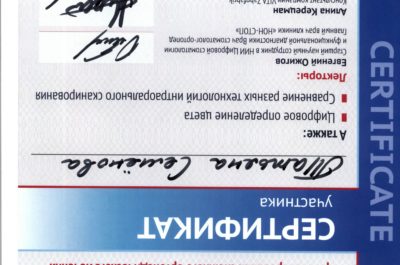 СЕРТИФИКАТ
участника
Татьяна Семёнова
А также:
Цифровое определение цвета
Сравнение разных технологий интраорального сканирования
Лекторы:
Евгений Ожигов
Старший научный сотрудник в НИИ Цифровой стоматологии
и функциональной диагностики Врач стоматолог ортопед
Главный врач клиники «НОН-СТОП»
Алина Керецман
CERTIFICATE